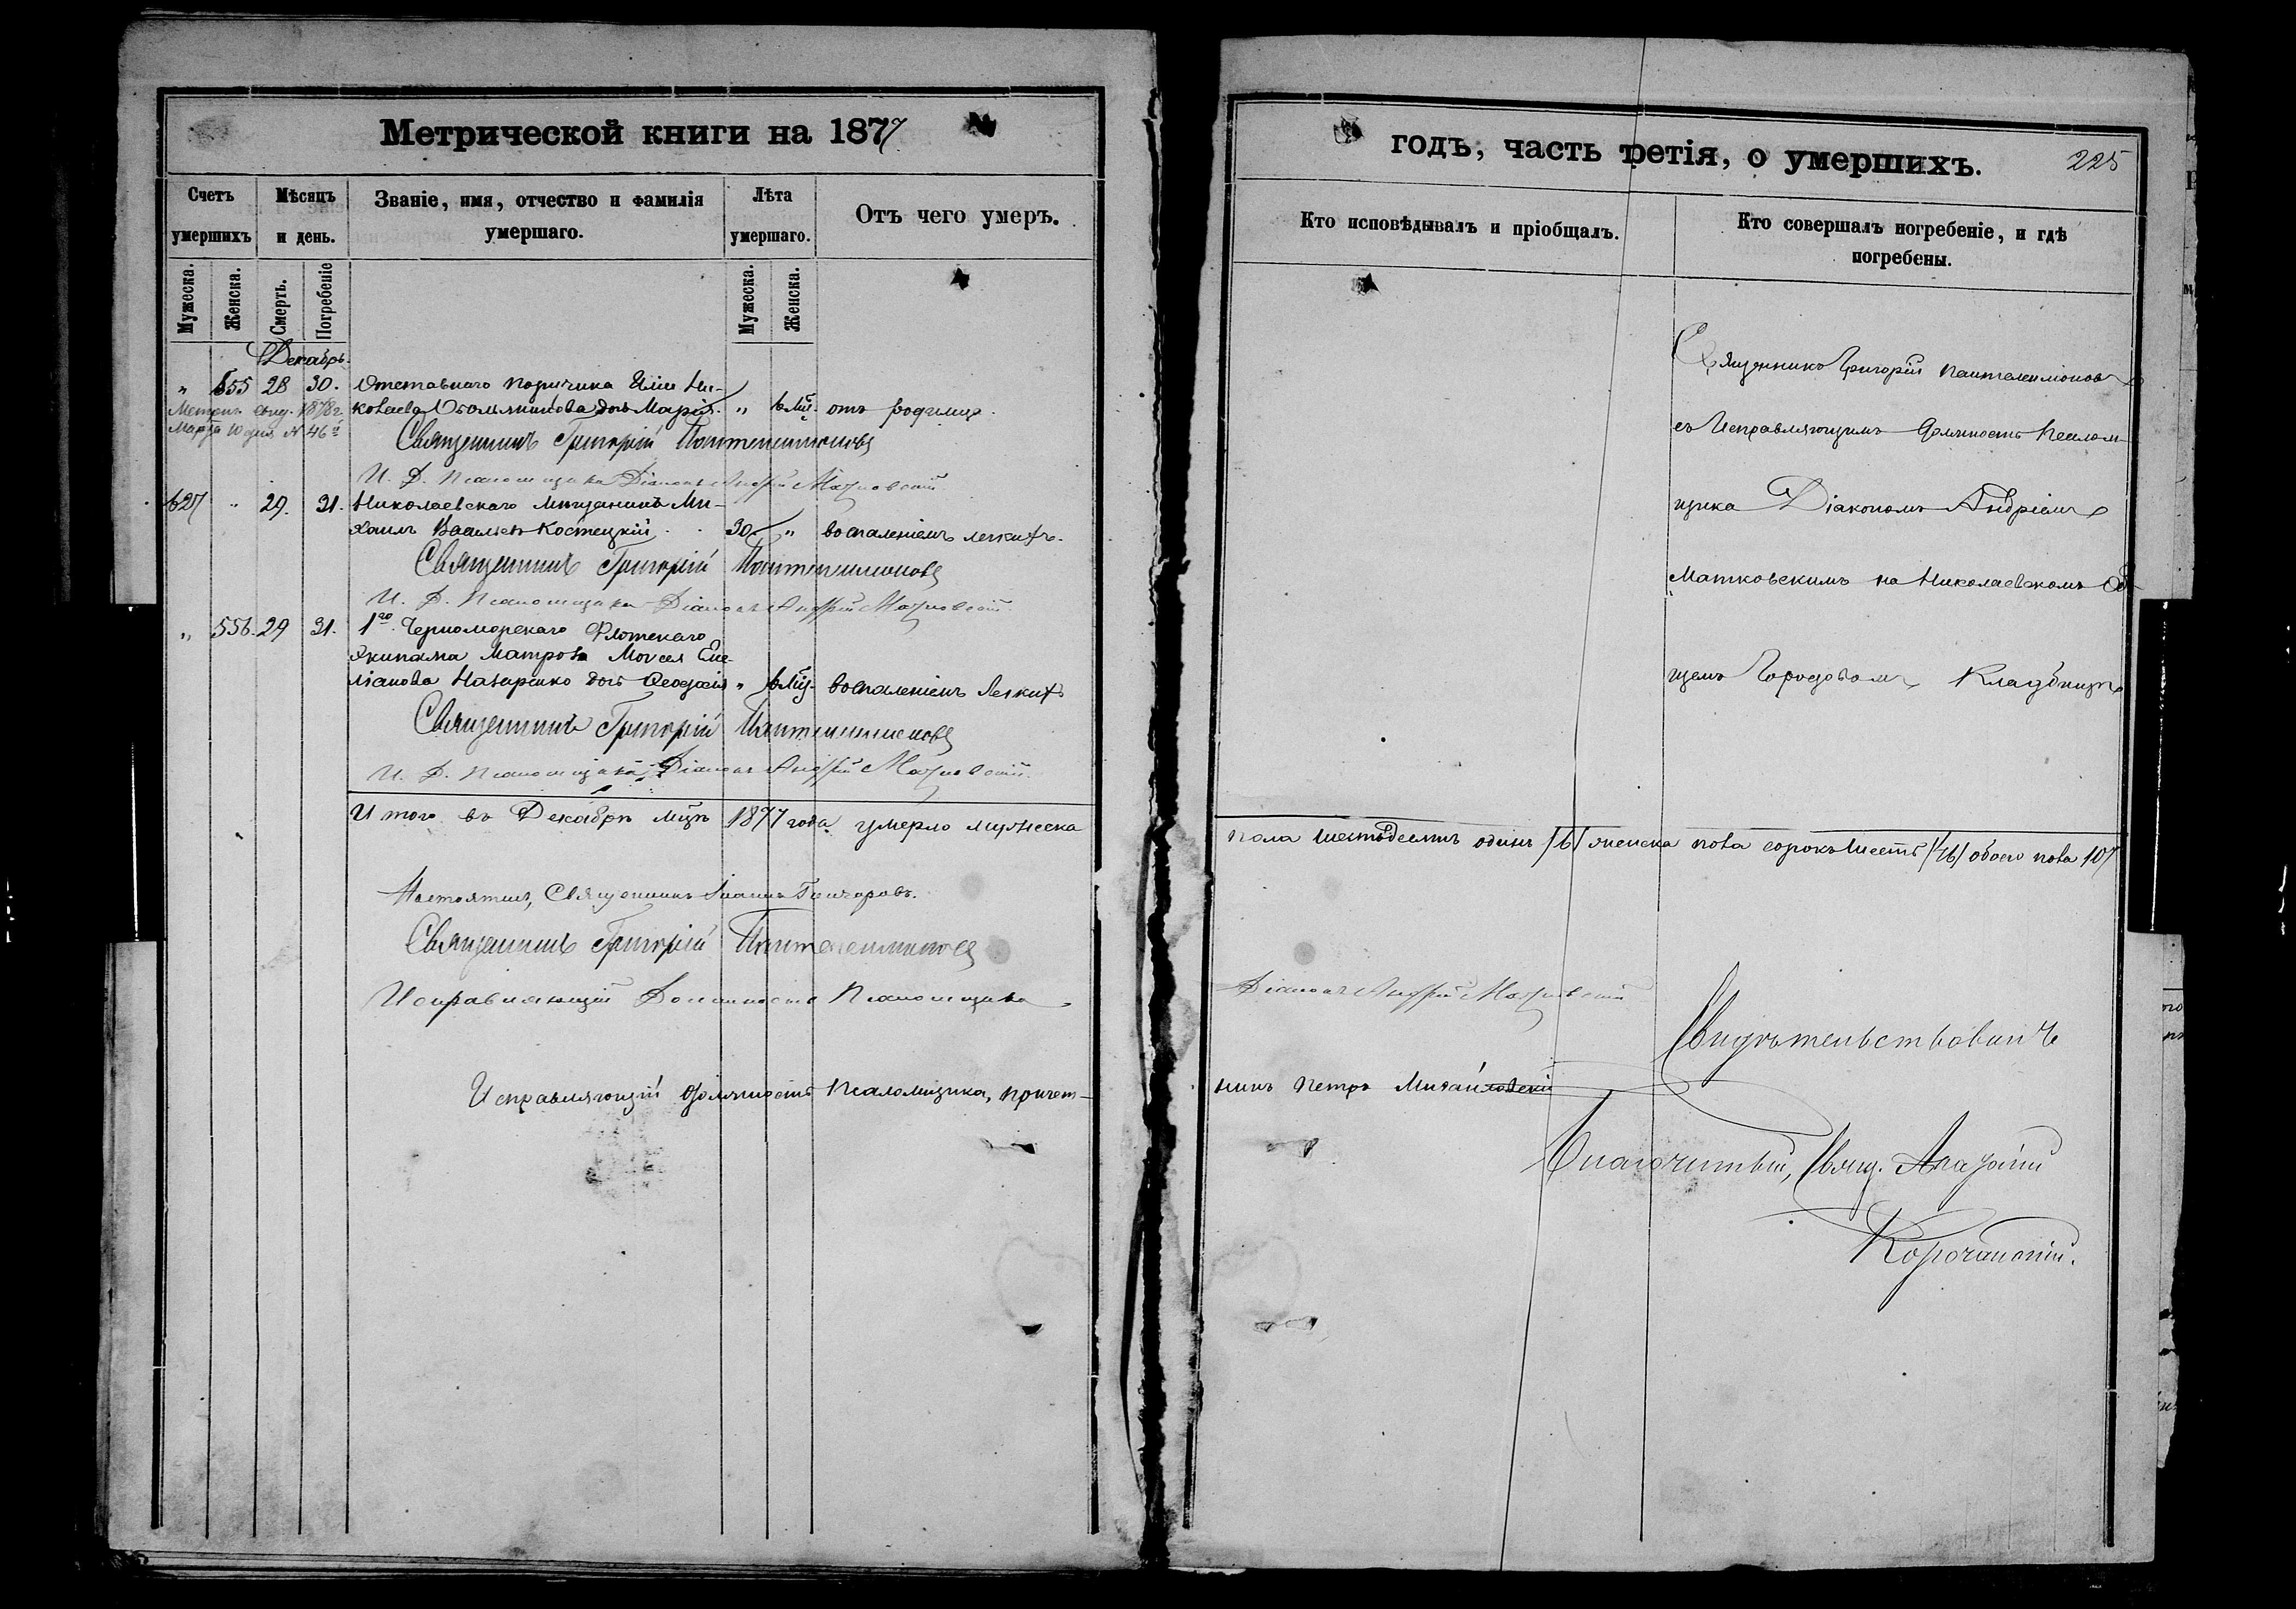 Метрической книги на 1877
Счетъ умершихъ
Мѣсяцъ и день.
Званіе, имя, отчество и фамилія умершаго.
Лѣта умершаго.
Отъ чего умеръ.
Мужеска.
Женска.
Смерть.
Погребеніе
Мужеска.
Женска.
Декабрь.
" 555 28 30. Отставнаго Поручика Иліи Ни-
колаева дочь Марія. " 6 Мц. отъ родимца.
Метрич. свид. 1878 г.
Марта 10 дня № 46
Священникъ Григорій Пантелеимоновъ
И. Д. Псаломщика Діаконъ Андрей Матковскій
627 " 29. 31. Николаевскаго мѣщанинъ Ми-
хаилъ Васильевъ Костецкій 30. " воспаленіемъ легкихъ.
Священникъ Григорій Пантелеимоновъ
И. Д. Псаломщика Діаконъ Андрей Матковскій
" 556. 29 31. 1го Черноморскаго Флотскаго
Экипажа Матроса Моисея Еме-
ліанова Назаренко дочь Ѳеодосія " 6 Мц. воспаленіемъ легкихъ
Священникъ Григорій Пантелеимоновъ
И. Д. Псаломщика Діаконъ Андрей Матковскій
Итого въ Декабрѣ мцѣ 1877 года умерло мужеска
Настоятель, Священникъ Іоаннъ Гончаровъ.
Священникъ Григорій Пантелеимоновъ
Исправляющій Должность Псаломщика
Исправляющій должность Псаломщика, причет-
годъ, часть третія, о умершихъ.
225
Кто исповѣдывалъ и пріобщалъ.
Кто совершалъ погребеніе, и гдѣ погребены.
Священникъ Григорій Пантелеимоновъ
съ Исправляющимъ Должность Псалом-
щика Діакономъ Андріемъ
Матковскимъ на Николаевскомъ Об-
щемъ Городовомъ Кладбищѣ
пола шестьдесятъ одинъ /61/ женска пола сорокъ шесть /46/ обоего пола 107
Діаконъ Андрей Матковскій
Свидѣтельствовалъ
никъ Петръ Михайловскій
Благочинный, Свящ. Аркадій
Корочанскій.